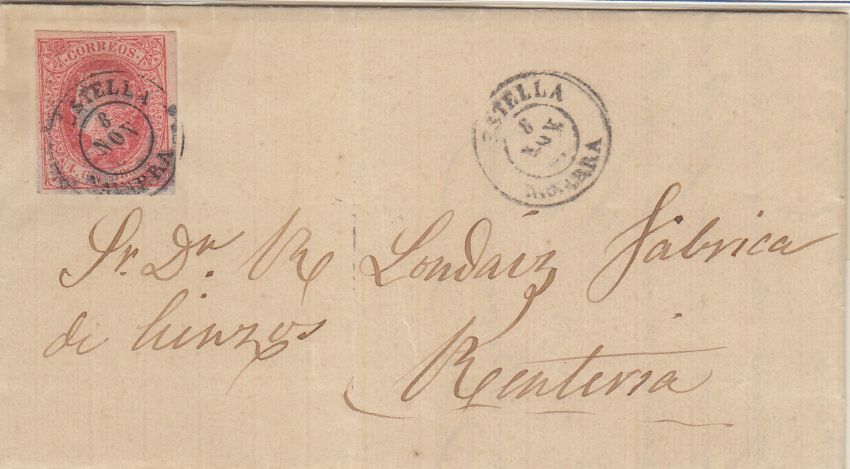 CORREOS
ESTELLA
8
NOV
NAVARRA
ESTELLA
8
NOV
NAVARRA
Sr. Dn. R Londaiz Fábrica
de linzos
Renteria